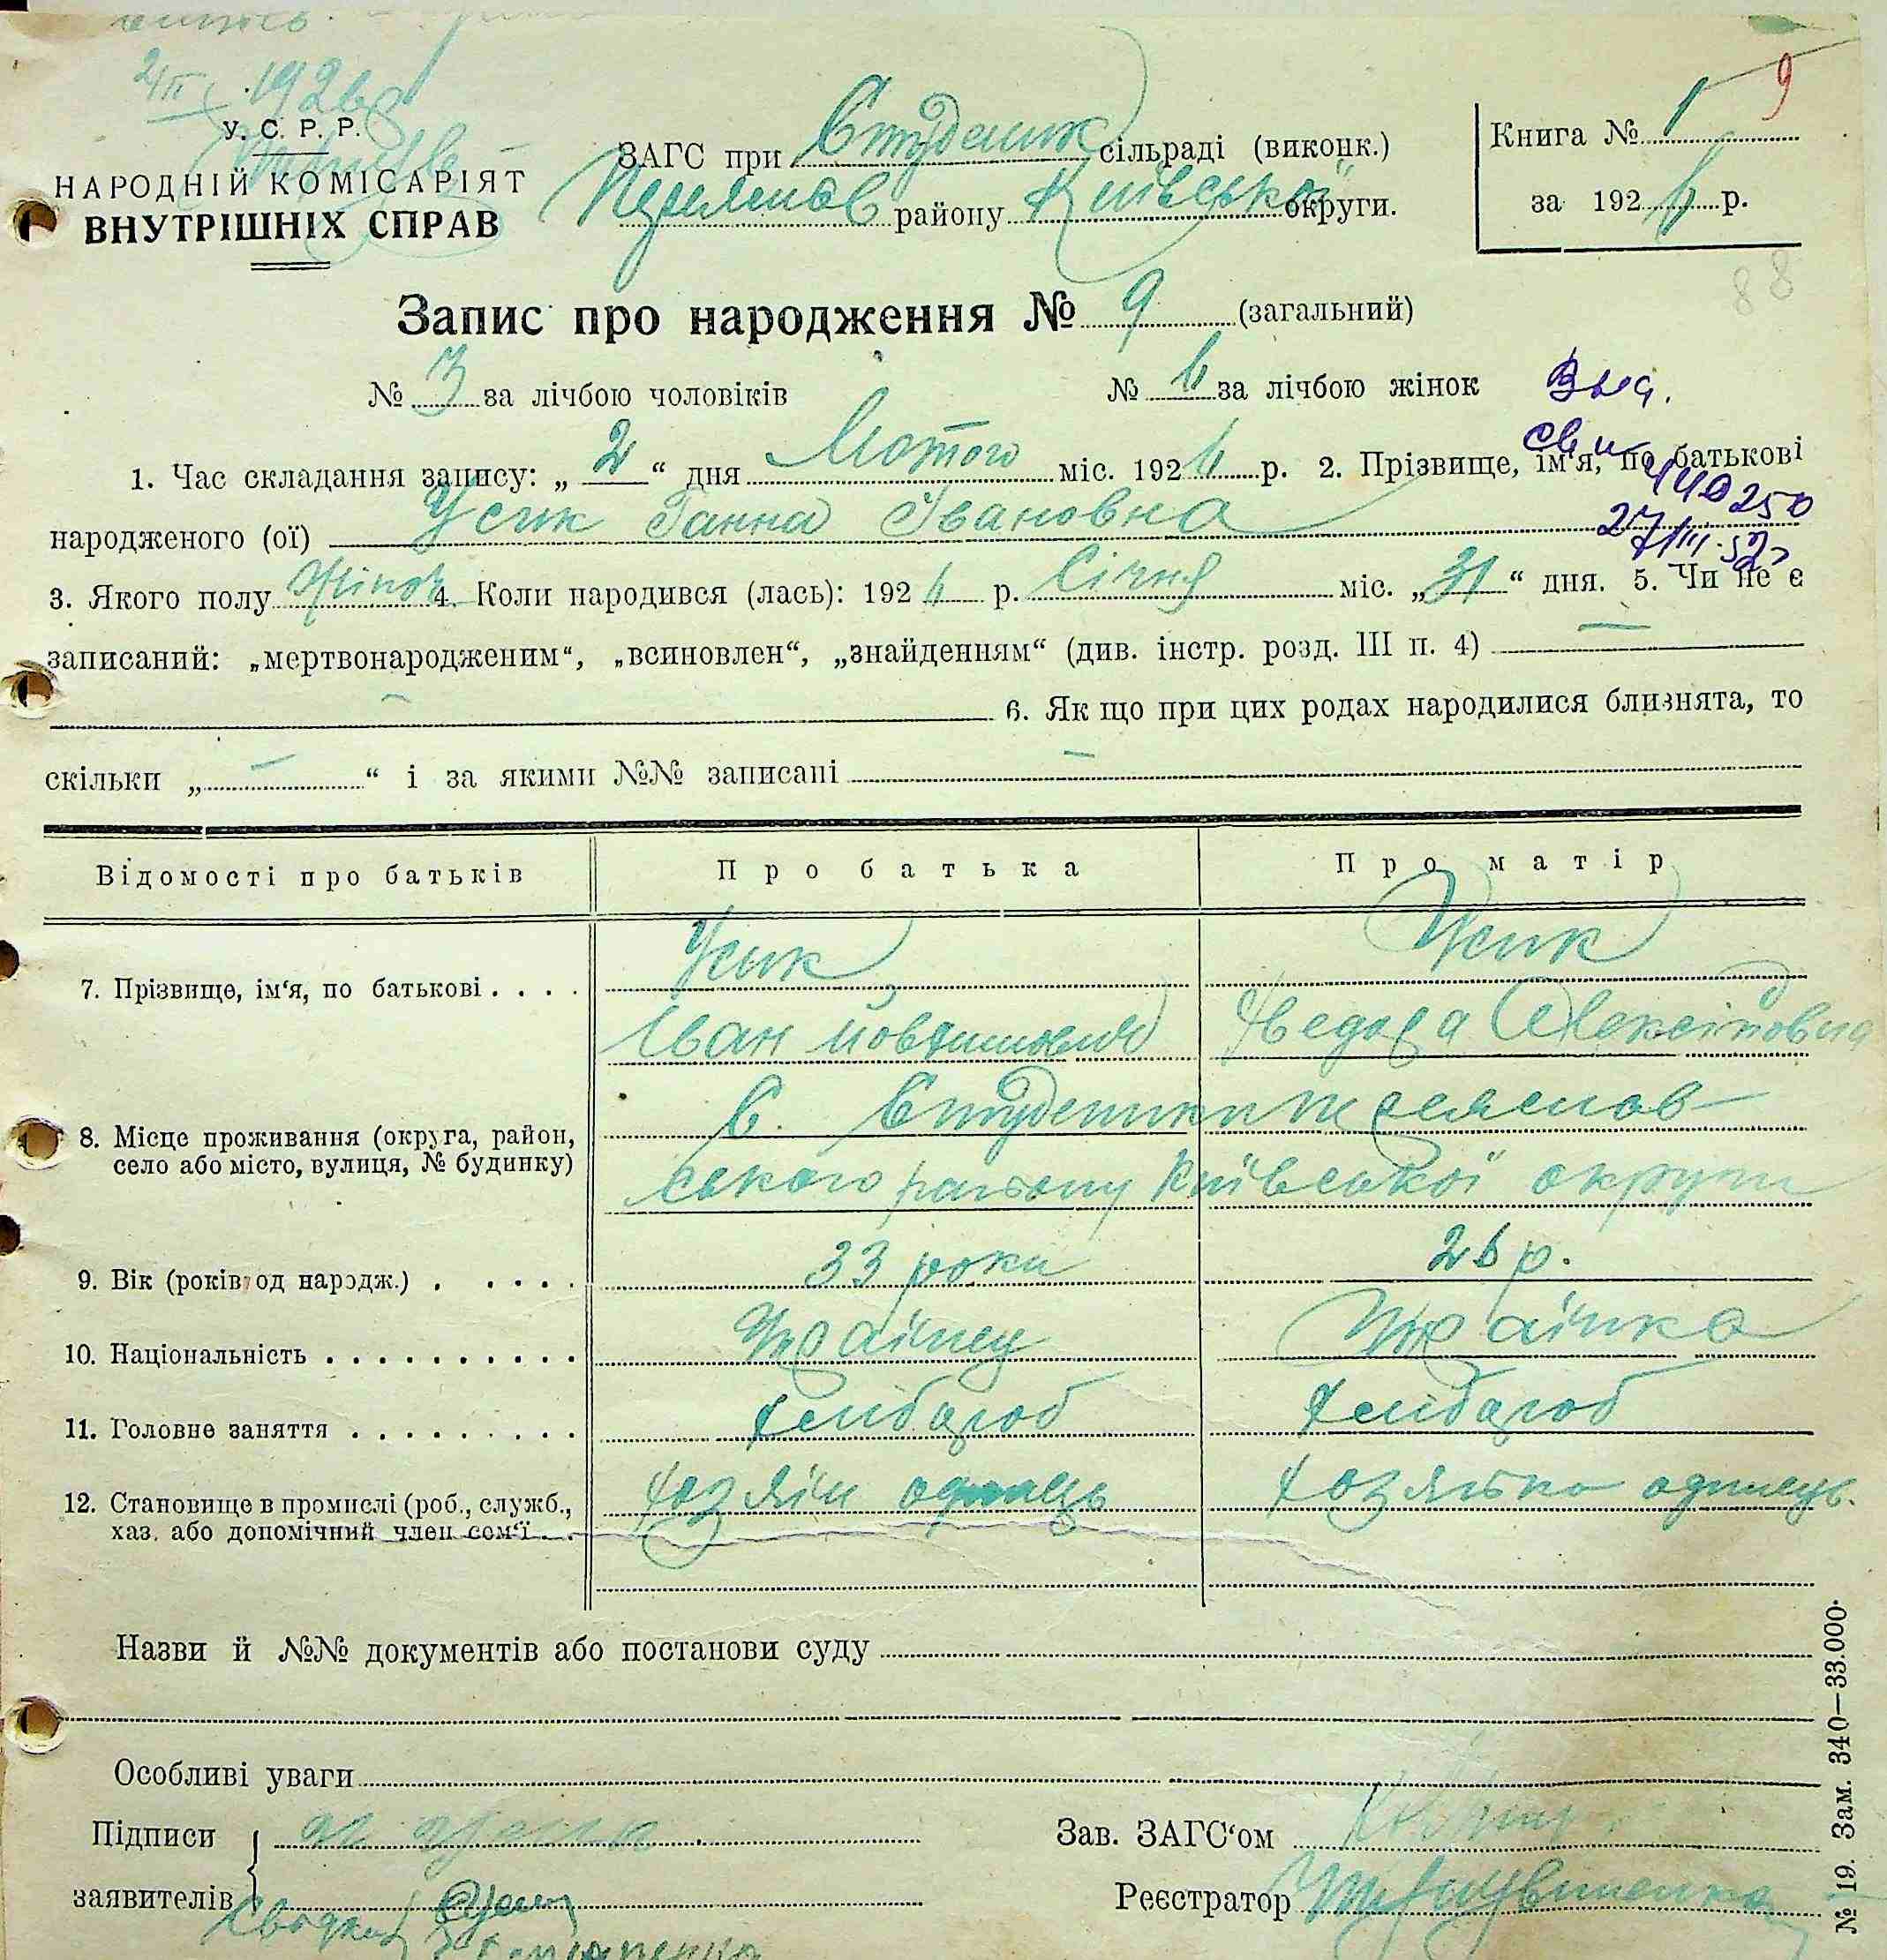 1926
У. С. Р. Р.
НАРОДНІЙ КОМІСАРІЯТ
ВНУТРІШНІХ СПРАВ
ЗАГС при Студеник сільраді (виконк.)
району Київської округи.
Книга № 1 9
за 1926 р.
88
Запис про народження № 9 (загальний)
№ 3 за лічбою чоловіків № 6 за лічбою жінок
Выд.
1. Час складання запису: „ 2 “ дня Лютого міс. 1926 р. 2. Прізвище, ім'я, по батькові
440250
народженого (ої) Усик Ганна Івановна
27/III.52
3. Якого полу Жіноч. 4. Коли народився (лась): 1926 р. Січня міс. „ 31 “ дня. 5. Чи не є
записаний: „мертвонародженим“, „всиновлен“, „знайденням“ (див. інстр. розд. III п. 4) —
— 6. Як що при цих родах народилися близнята, то
скільки „ — “ і за якими №№ записані —
Відомості про батьків Про батька Про матір
7. Прізвище, ім'я, по батькові . . . . Усик Усик
Іван Йовтихович Хведора Олексіїовна
8. Місце проживання (округа, район, село або місто, вулиця, № будинку) С. Студеники Переяслов-
ського району Київської округи
9. Вік (років од народж.) . . . . . 33 роки 26 р.
10. Національність . . . . . . . . . . Українец Українка
11. Головне заняття . . . . . . . . . Хлібороб Хлібороб
12. Становище в промислі (роб., служб., хаз. або допомічний член сем'ї . . . Хозяїн одинець Хозяйка одинець.
Назви й №№ документів або постанови суду
Особливі уваги
Підписи
заявителів
Зав. ЗАГС'ом
Реєстратор
№ 19. Зам. 340—33.000.